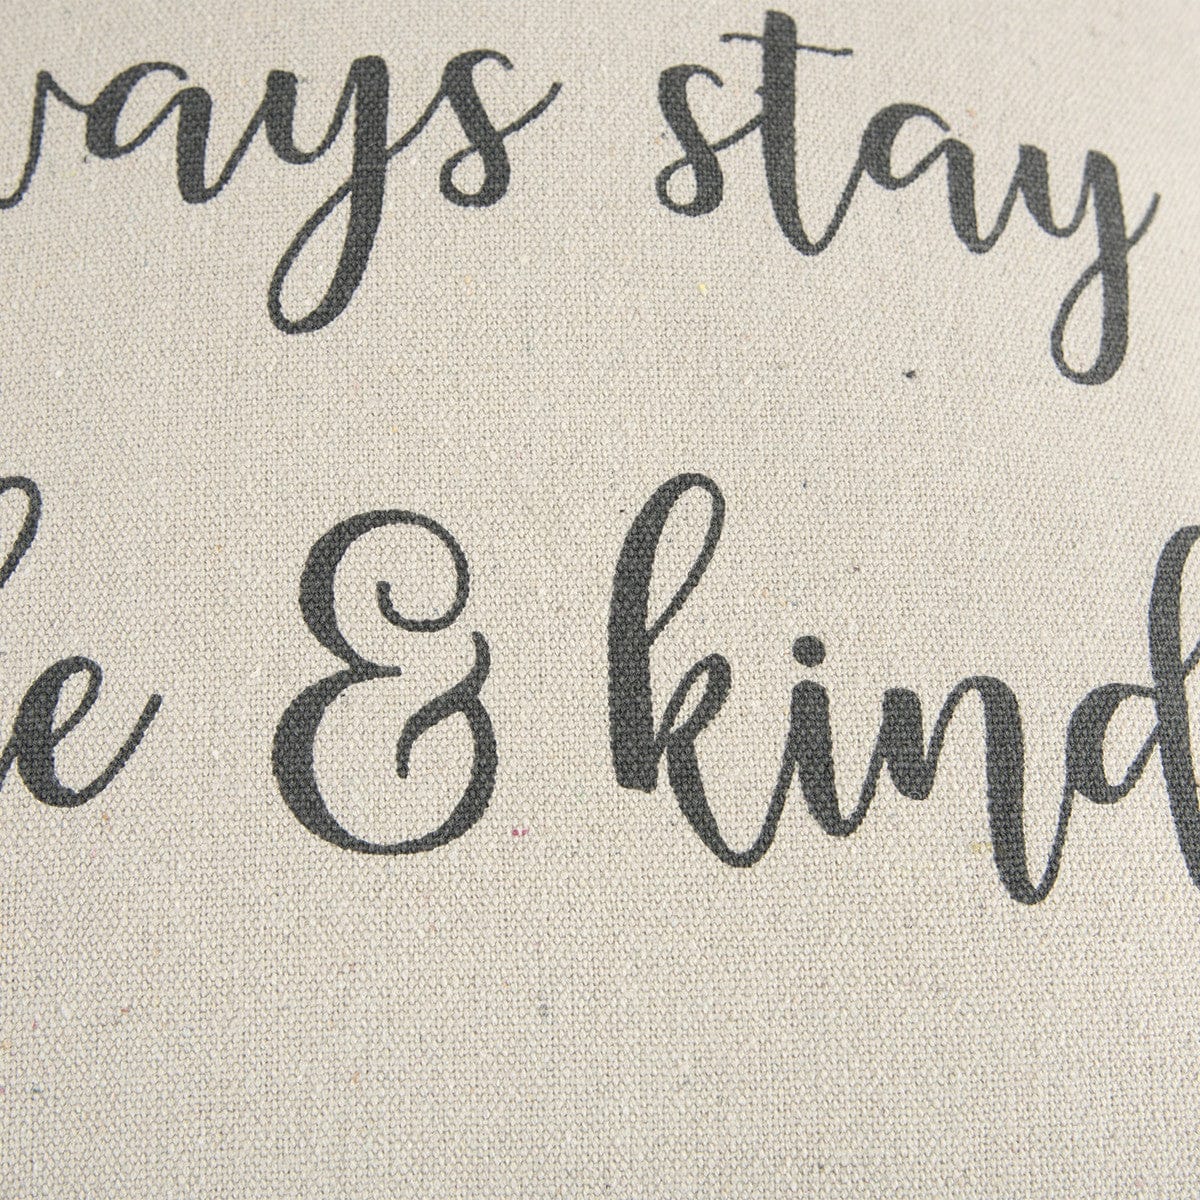 ways stay
le & kind